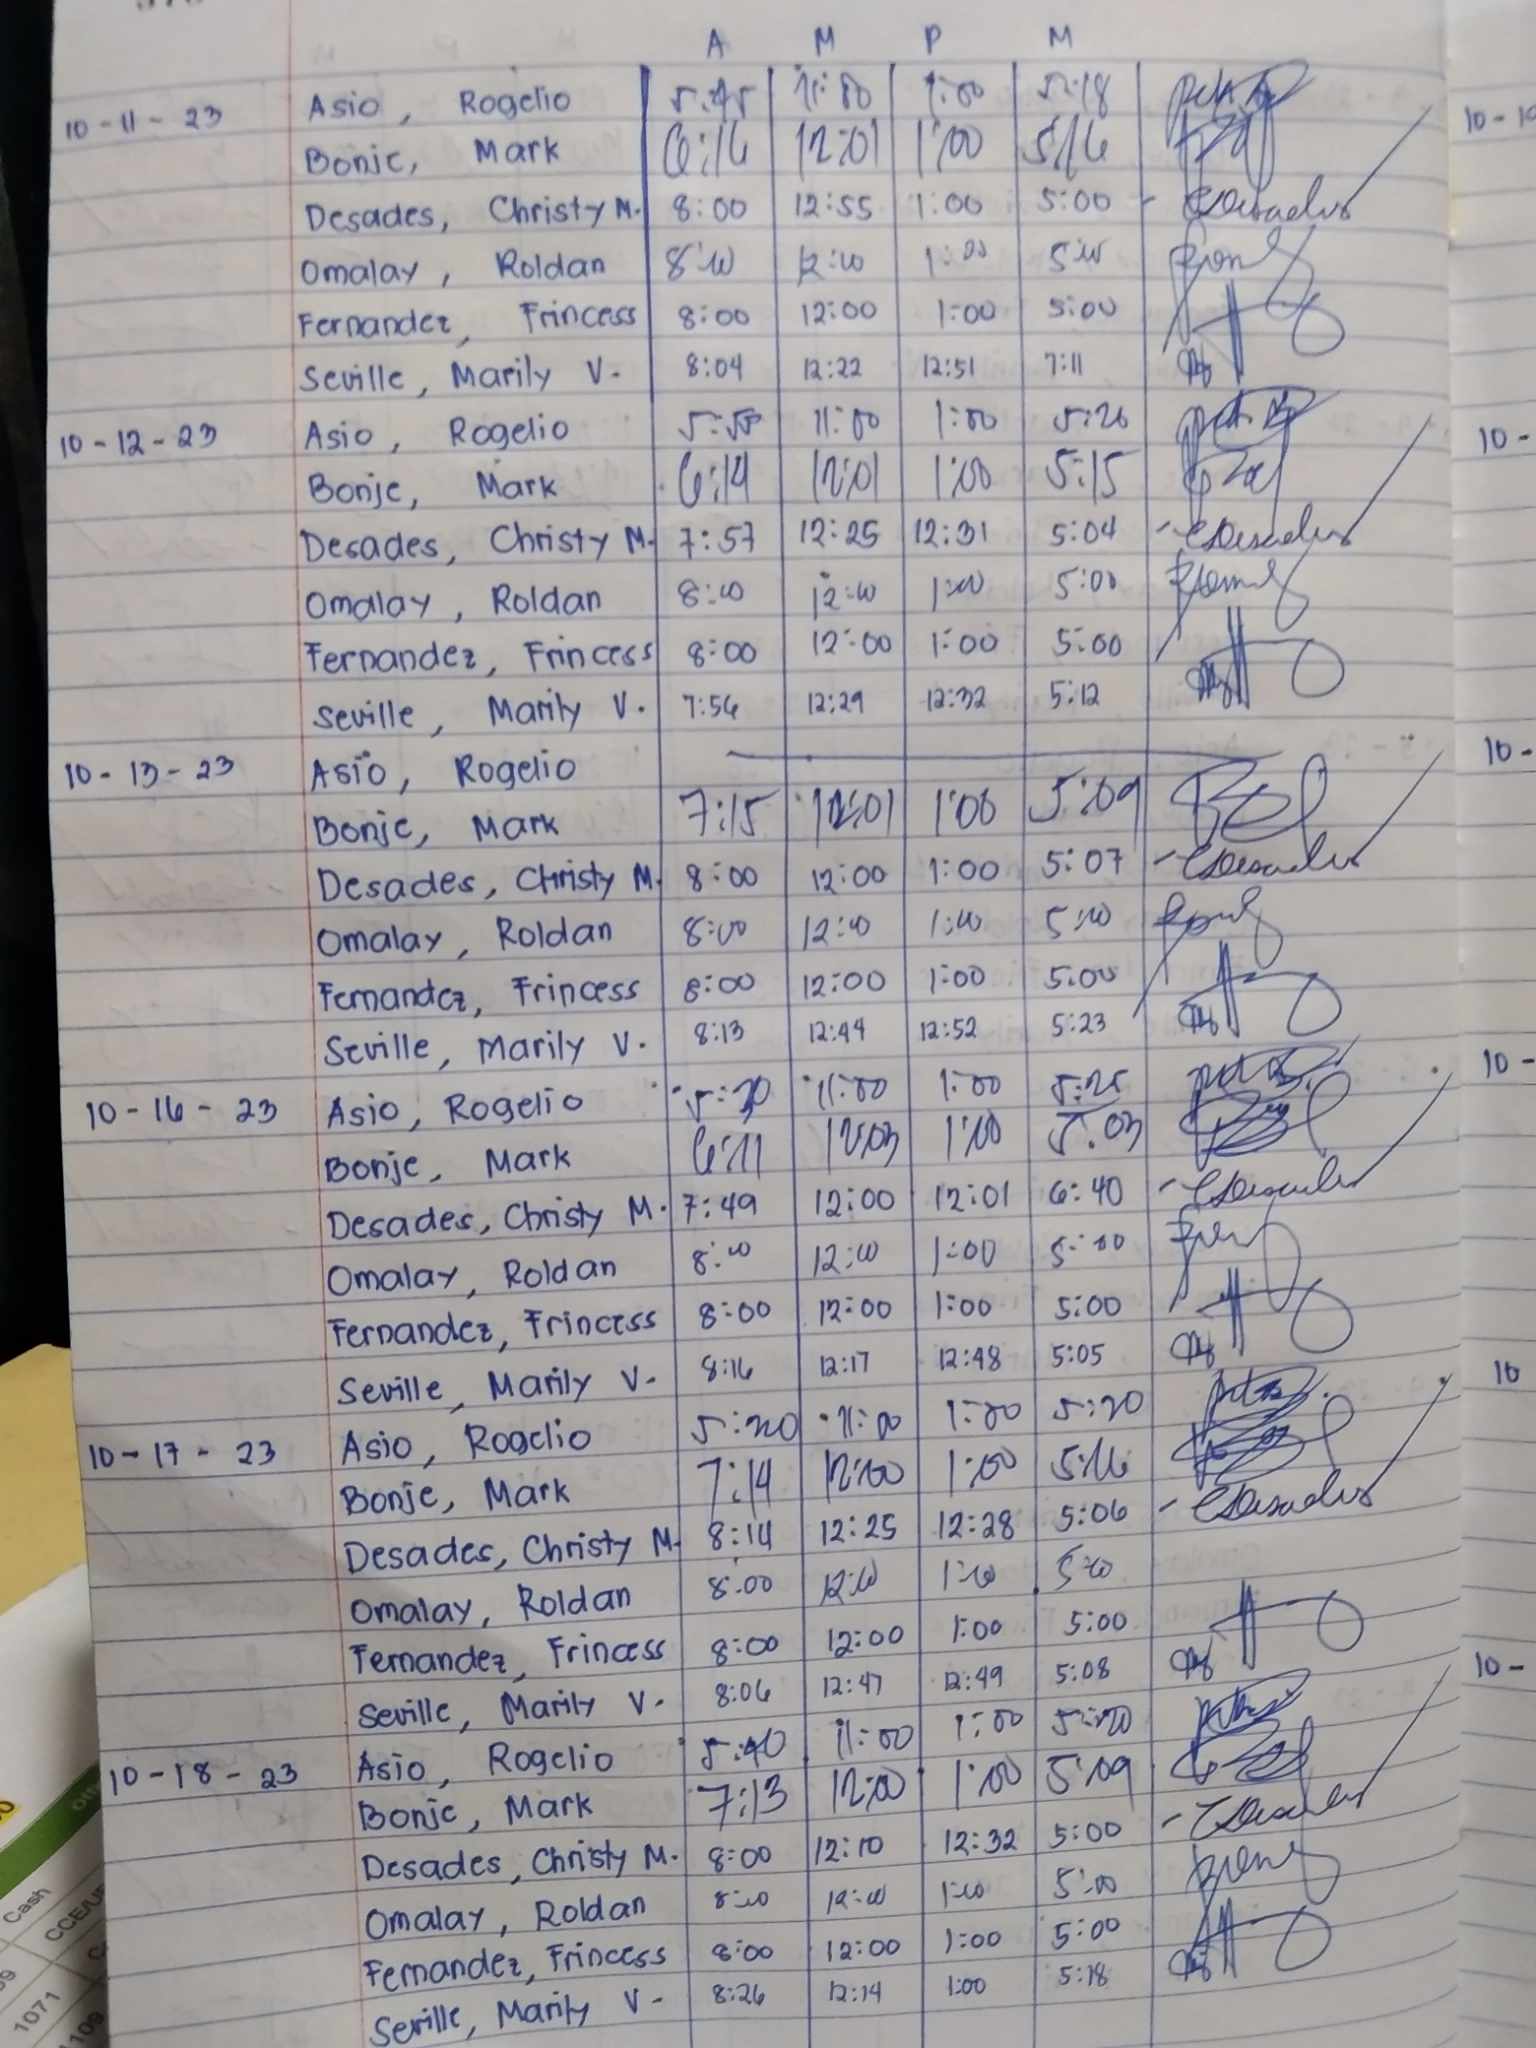 A M P M
10-11-23 Asio, Rogelio 5:45 11:00 1:00 5:18
Bonje, Mark 6:16 12:01 1:00 5:16
Desades, Christy M. 8:00 12:55 1:00 5:00 - CDesades
Omalay, Roldan 8:00 12:00 1:00 5:00
Fernandez, Frincess 8:00 12:00 1:00 5:00
Seville, Marily V. 8:04 12:22 12:51 7:11
10-12-23 Asio, Rogelio 5:50 11:00 1:00 5:26
Bonje, Mark 6:14 12:01 1:00 5:15
Desades, Christy M. 7:57 12:25 12:31 5:04 - CDesades
Omalay, Roldan 8:00 12:00 1:00 5:00
Fernandez, Frincess 8:00 12:00 1:00 5:00
Seville, Marily V. 7:56 12:29 12:32 5:12
10-13-23 Asio, Rogelio
Bonje, Mark 7:15 12:01 1:00 5:09
Desades, Christy M. 8:00 12:00 1:00 5:07 - CDesades
Omalay, Roldan 8:00 12:00 1:00 5:00
Fernandez, Frincess 8:00 12:00 1:00 5:00
Seville, Marily V. 8:13 12:44 12:52 5:23
10-16-23 Asio, Rogelio 5:30 11:00 1:00 5:25
Bonje, Mark 6:11 12:03 1:00 5:03
Desades, Christy M. 7:49 12:00 12:01 6:40 - CDesades
Omalay, Roldan 8:00 12:00 1:00 5:00
Fernandez, Frincess 8:00 12:00 1:00 5:00
Seville, Marily V. 8:16 12:17 12:48 5:05
10-17-23 Asio, Rogelio 5:20 11:00 1:00 5:20
Bonje, Mark 7:14 12:00 1:00 5:16
Desades, Christy M. 8:14 12:25 12:28 5:06 - CDesades
Omalay, Roldan 8:00 12:00 1:00 5:00
Fernandez, Frincess 8:00 12:00 1:00 5:00
Seville, Marily V. 8:06 12:47 12:49 5:08
10-18-23 Asio, Rogelio 5:40 11:00 1:00 5:20
Bonje, Mark 7:13 12:00 1:00 5:09
Desades, Christy M. 8:00 12:10 12:32 5:00 - CDesades
Omalay, Roldan 8:00 12:00 1:00 5:00
Fernandez, Frincess 8:00 12:00 1:00 5:00
Seville, Marily V. 8:26 12:14 1:00 5:18
10-
10-
10-
10
10-
Cash
1071